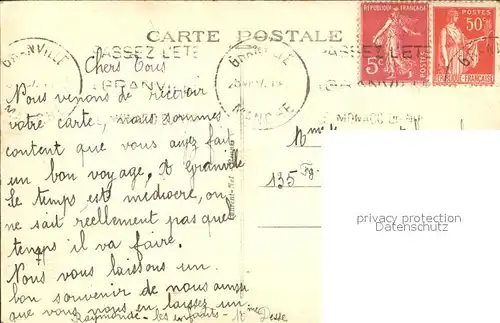 CARTE POSTALE
GRANVILLE
PASSEZ L'ÉTÉ
GRANVILLE
MANCHE
RÉPUBLIQUE FRANÇAISE
5c
POSTES
50c
RÉPUBLIQUE FRANÇAISE
MONACO DU NORD
Chers Tous
Nous venons de recevoir
votre carte, nous sommes
content que vous ayez fait
un bon voyage, A Granville
le temps est médiocre, on
ne sait réellement pas quel
temps il va faire.
Nous vous laissons un
bon souvenir de nous aussi
que vous nous en laissez un.
Raymonde - les enfants - Mme
135 Fg.
privacy protection
Datenschutz